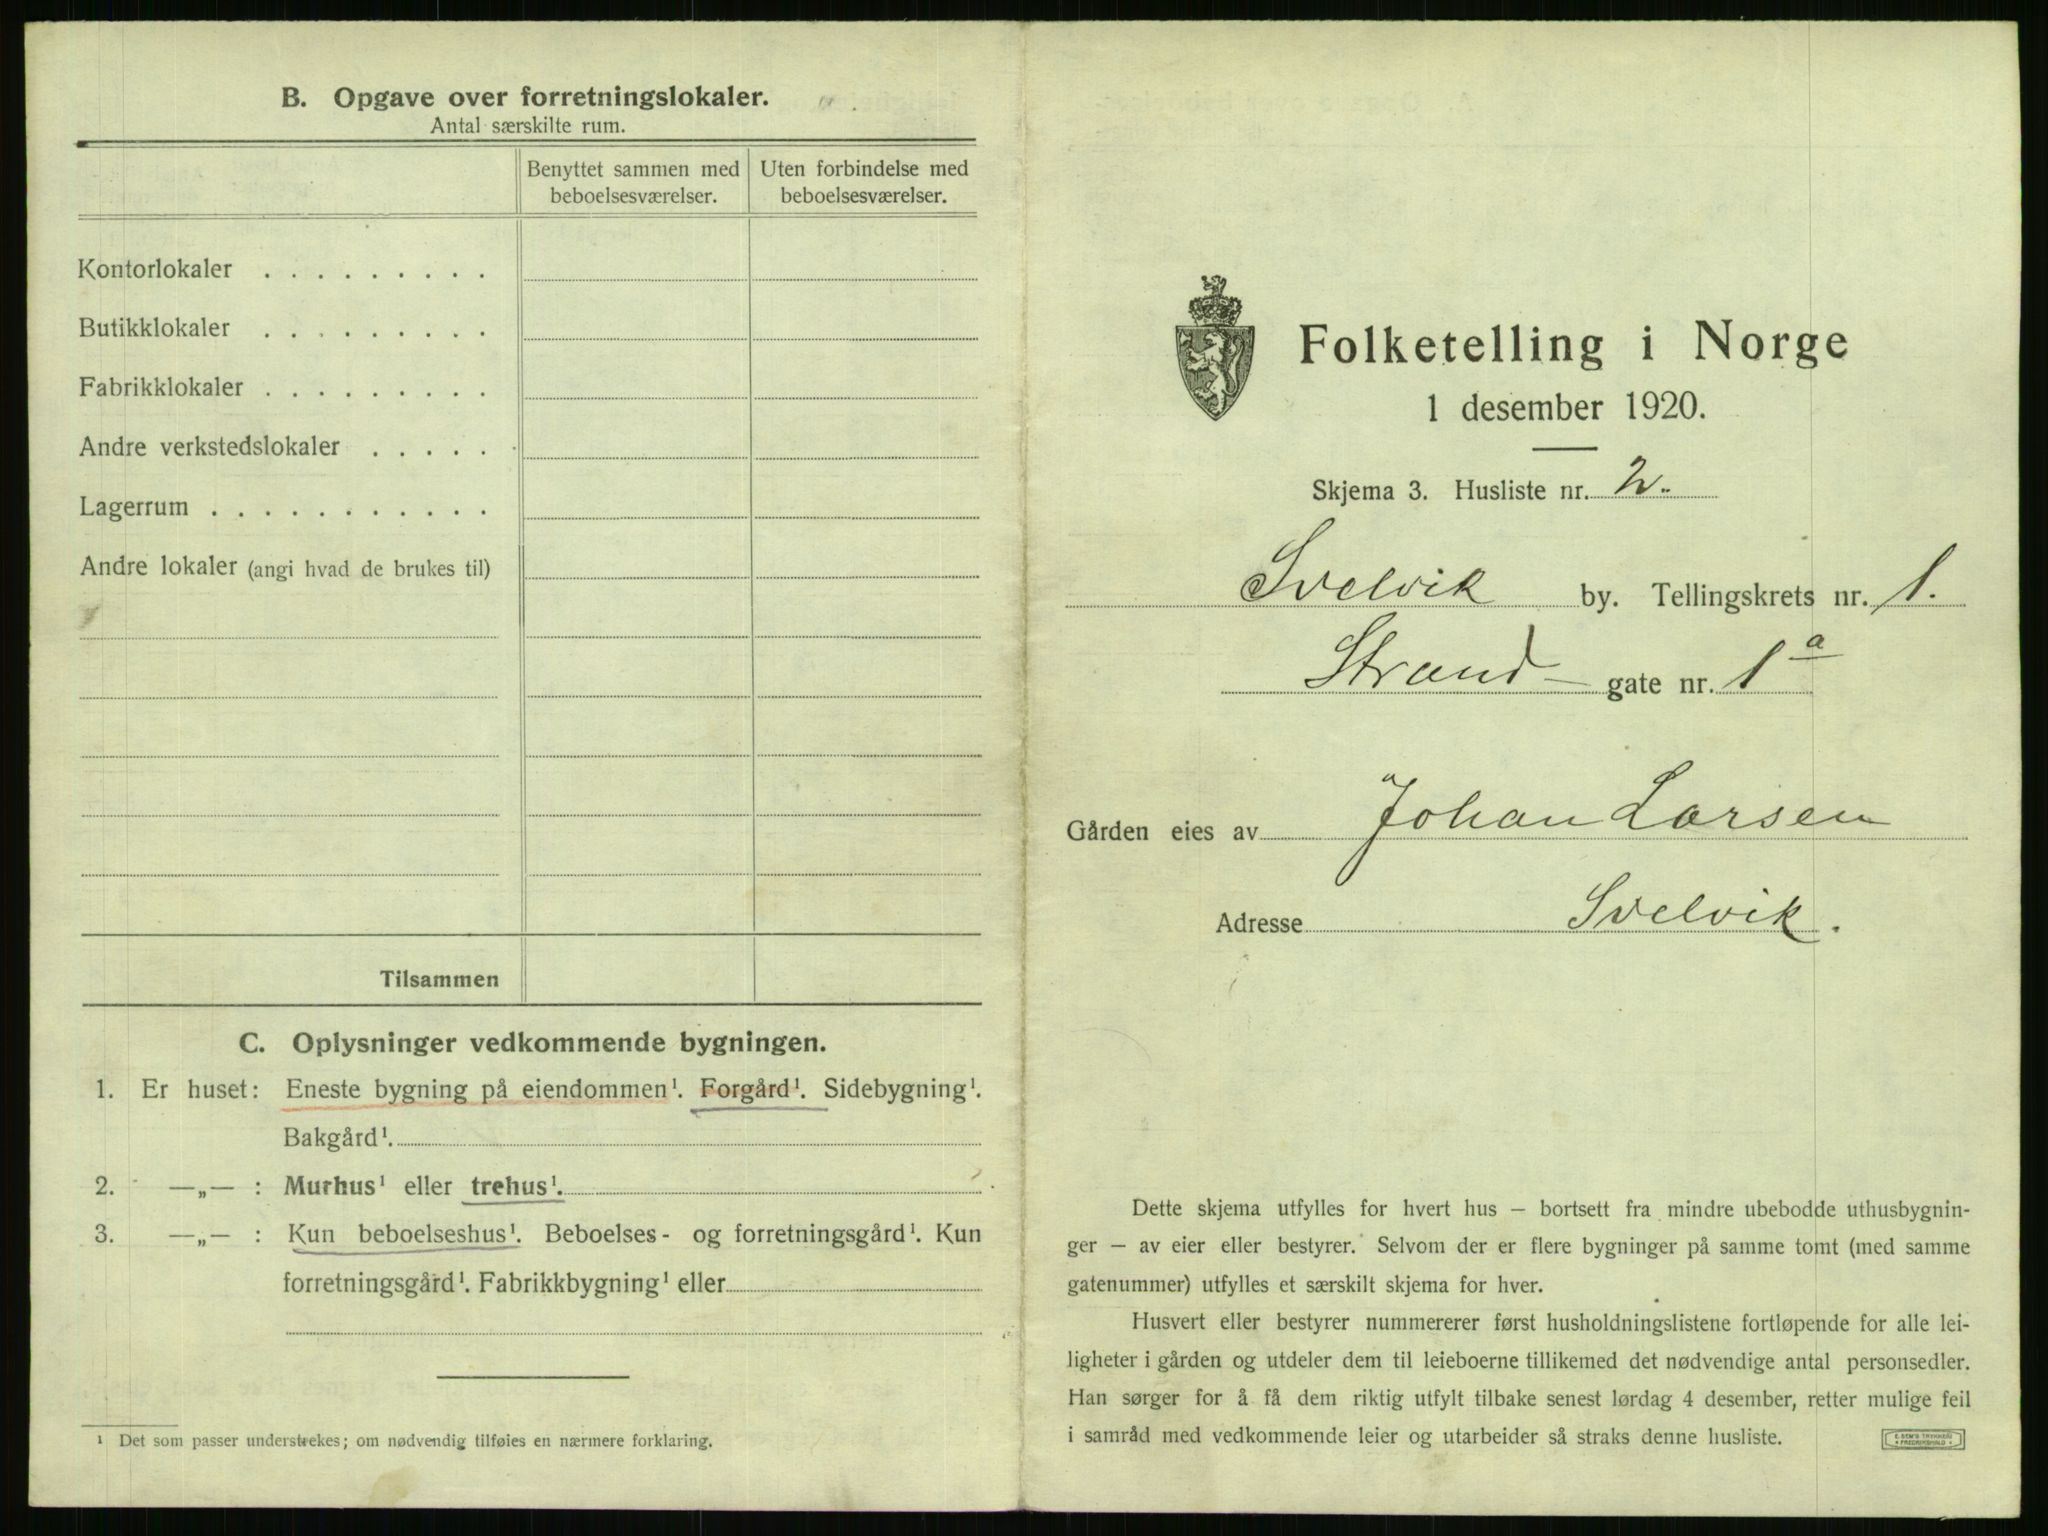 B. Opgave over forretningslokaler.
Antal særskilte rum.
Benyttet sammen med beboelsesværelser.
Uten forbindelse med beboelsesværelser.
Kontorlokaler . . . . . . . . .
Butikklokaler . . . . . . . . .
Fabrikklokaler . . . . . . . . .
Andre verkstedslokaler . . . . .
Lagerrum . . . . . . . . . . .
Andre lokaler (angi hvad de brukes til)
Tilsammen
C. Oplysninger vedkommende bygningen.
1. Er huset: Eneste bygning på eiendommen¹. Forgård¹. Sidebygning¹.
Bakgård¹.
2. —„— : Murhus¹ eller trehus¹.
3. —„— : Kun beboelseshus¹. Beboelses- og forretningsgård¹. Kun
forretningsgård¹. Fabrikkbygning¹ eller
¹ Det som passer understrekes; om nødvendig tilføies en nærmere forklaring.
Folketelling i Norge
1 desember 1920.
Skjema 3. Husliste nr. 2.
Svelvik by. Tellingskrets nr. 1.
Strand- gate nr. 1 a
Gården eies av Johan Larsen
Adresse Svelvik.
Dette skjema utfylles for hvert hus – bortsett fra mindre ubebodde uthusbygnin-
ger – av eier eller bestyrer. Selvom der er flere bygninger på samme tomt (med samme
gatenummer) utfylles et særskilt skjema for hver.
Husvert eller bestyrer nummererer først husholdningslistene fortløpende for alle lei-
ligheter i gården og utdeler dem til leieboerne tillikemed det nødvendige antal personsedler.
Han sørger for å få dem riktig utfylt tilbake senest lørdag 4 desember, retter mulige feil
i samråd med vedkommende leier og utarbeider så straks denne husliste.
E. SEM'S TRYKKERI
FREDRIKSHALD